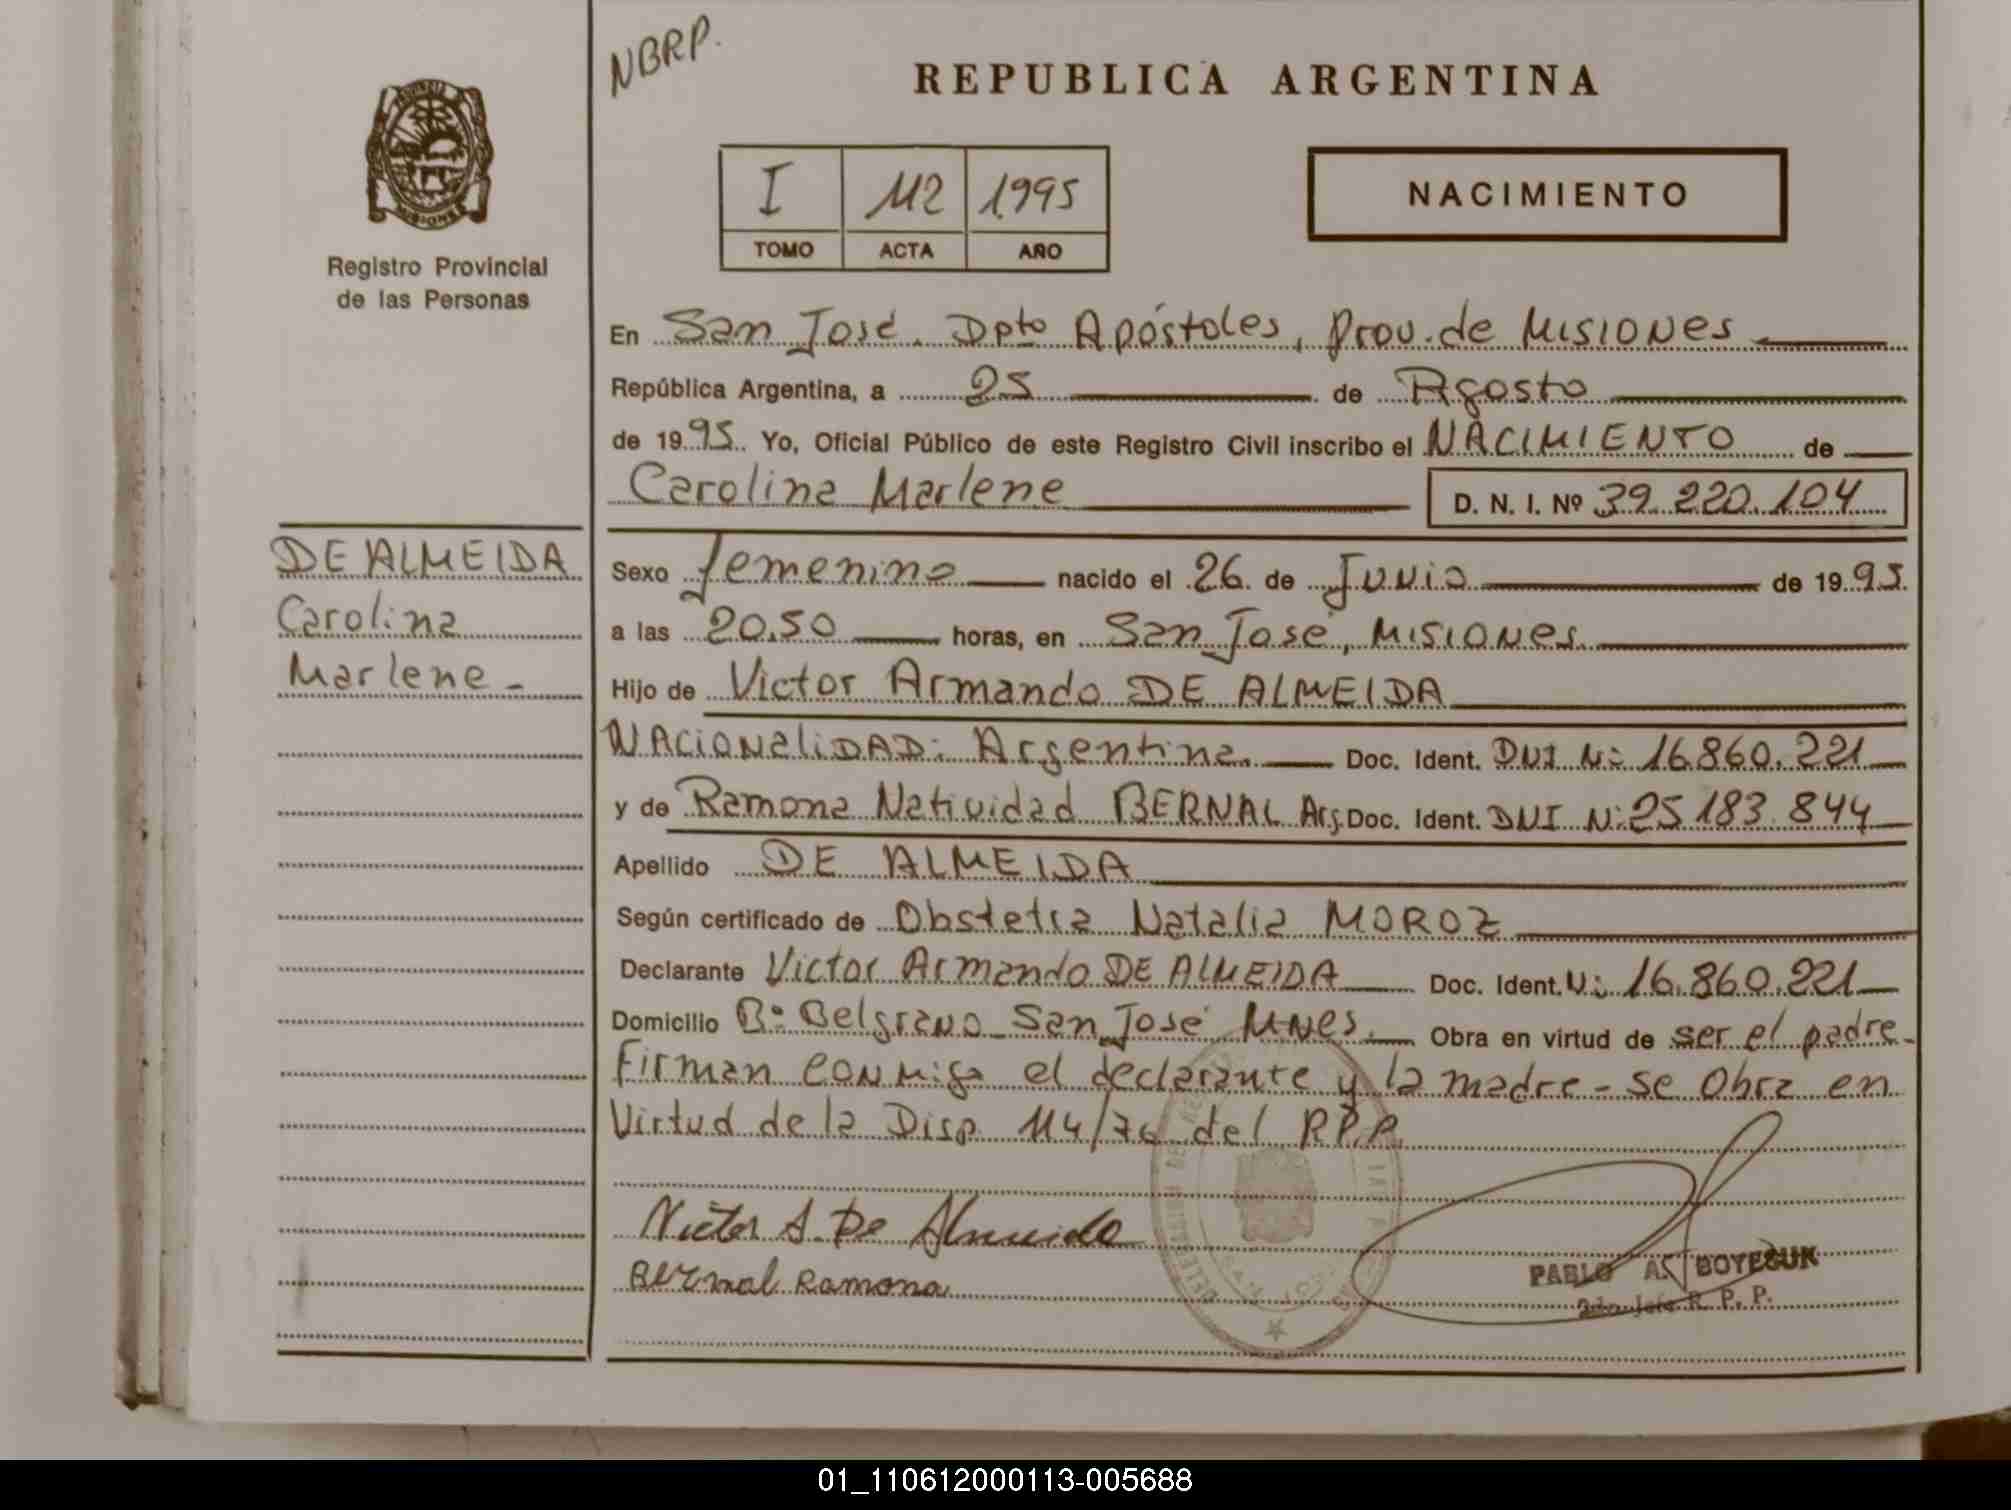 NBRP.
REPUBLICA ARGENTINA
MISIONES
Registro Provincial
de las Personas
I 112 1995
TOMO ACTA AÑO
NACIMIENTO
En San José. Dpto Apóstoles, Prov. de Misiones
República Argentina, a 25 de Agosto
de 1995 Yo, Oficial Público de este Registro Civil inscribo el NACIMIENTO de
Carolina Marlene D. N. I. Nº 39.220.104
DE ALMEIDA
Carolina
Marlene -
Sexo femenino nacido el 26 de Junio de 1995.
a las 20.50 horas, en San José, Misiones.
Hijo de Victor Armando DE ALMEIDA
NACIONALIDAD: Argentina. Doc. Ident. DNI N: 16.860.221
y de Ramona Natividad BERNAL Arg. Doc. Ident. DNI N: 25183.844
Apellido DE ALMEIDA
Según certificado de Obstetra Natalia MOROZ
Declarante Victor Armando DE ALMEIDA Doc. Ident. N: 16.860.221
Domicilio Bº Belgrano San José Mnes. Obra en virtud de ser el padre -
Firman conmigo el declarante y la madre - se obra en
Virtud de la Disp. 114/76 del RP.P.
Victor A. De Almeida
Bernal Ramona
SAN JOSE
PABLO A. BOYECUK
2do Jefe R. P. P.
01_110612000113-005688